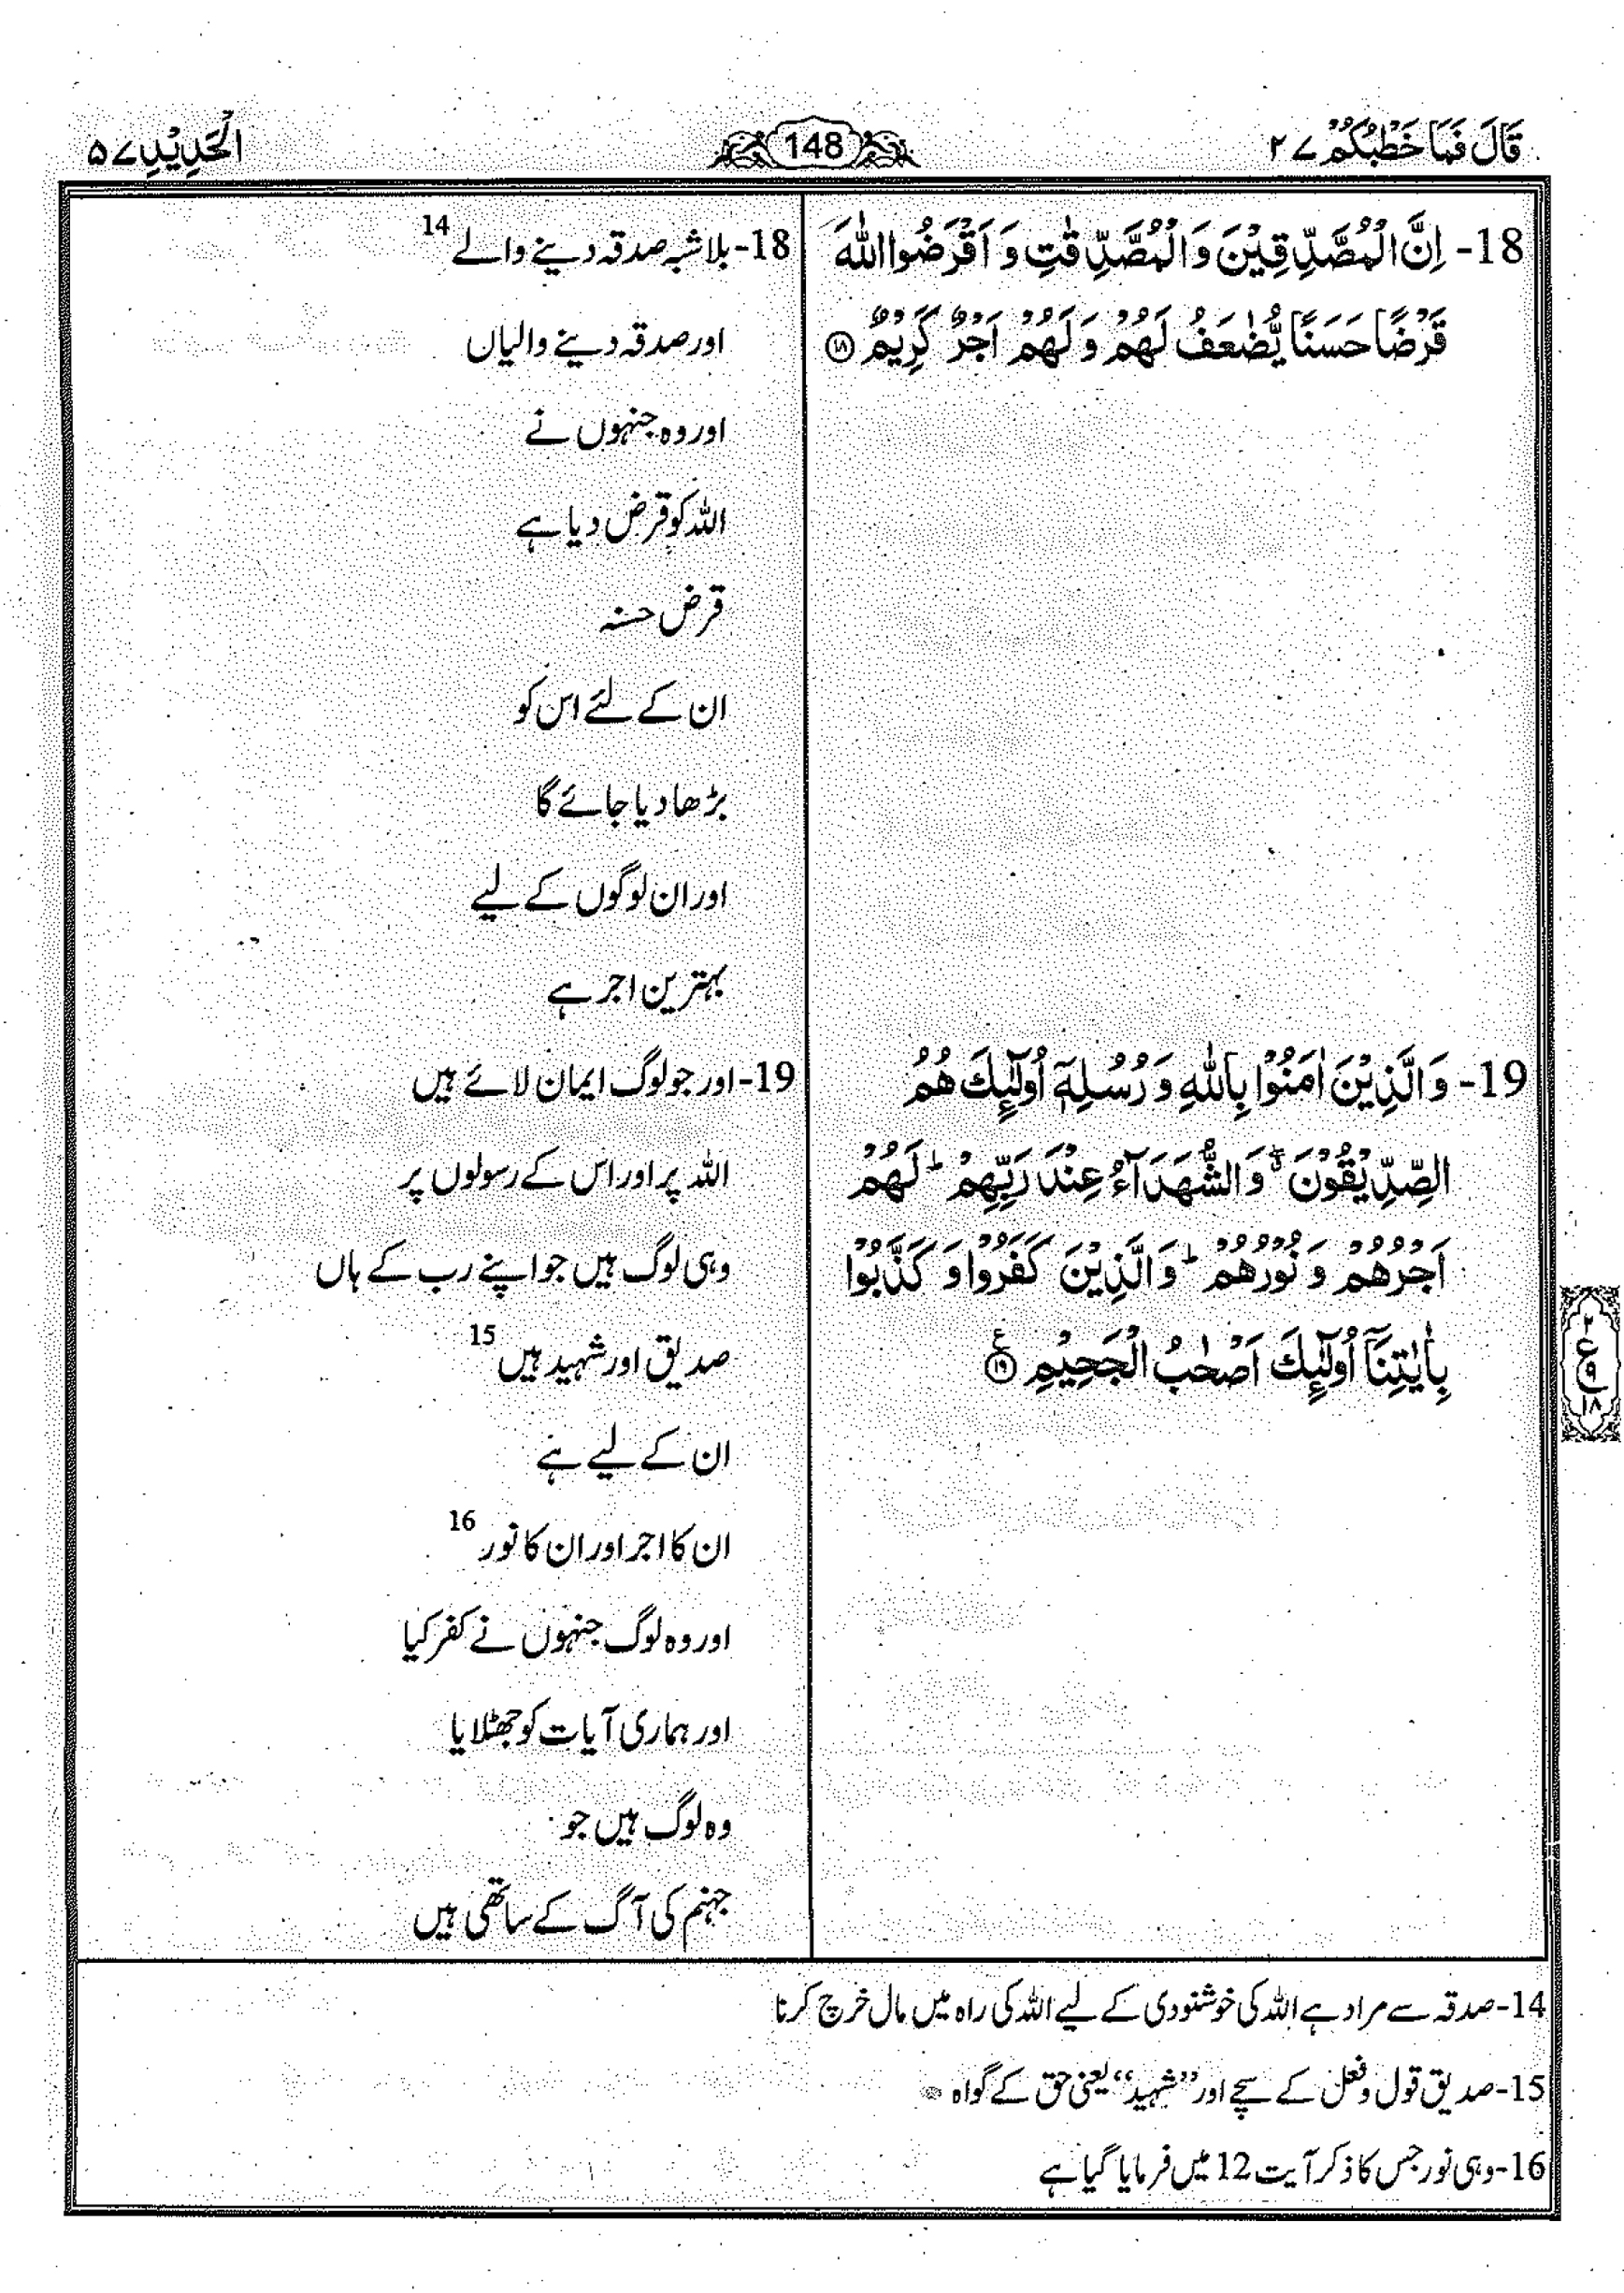 قَالَ فَمَا خَطْبُكُمْ ٢٧
148
الْحَدِيْدِ ۵۷
18- اِنَّ الْمُصَّدِّقِيْنَ وَ الْمُصَّدِّقٰتِ وَ اَقْرَضُوا اللّٰهَ
قَرْضًا حَسَنًا يُّضٰعَفُ لَهُمْ وَ لَهُمْ اَجْرٌ كَرِيْمٌ ﴿۱۸﴾
18- بلاشبہ صدقہ دینے والے 14
اور صدقہ دینے والیاں
اور وہ جنہوں نے
اللہ کو قرض دیا ہے
قرض حسنہ
ان کے لئے اس کو
بڑھا دیا جائے گا
اور ان لوگوں کے لیے
بہترین اجر ہے
19- وَ الَّذِيْنَ اٰمَنُوْا بِاللّٰهِ وَ رُسُلِهٖٓ اُولٰٓئِكَ هُمُ
الصِّدِّيْقُوْنَ ۖۗ وَ الشُّهَدَآءُ عِنْدَ رَبِّهِمْ ؕ لَهُمْ
اَجْرُهُمْ وَ نُوْرُهُمْ ؕ وَ الَّذِيْنَ كَفَرُوْا وَ كَذَّبُوْا
بِاٰيٰتِنَاۤ اُولٰٓئِكَ اَصْحٰبُ الْجَحِيْمِ ﴿۱۹﴾ ع
۲
ع
۹
۱۸
19- اور جو لوگ ایمان لائے ہیں
اللہ پر اور اس کے رسولوں پر
وہی لوگ ہیں جو اپنے رب کے ہاں
صدیق اور شہید ہیں 15
ان کے لیے ہے
ان کا اجر اور ان کا نور 16
اور وہ لوگ جنہوں نے کفر کیا
اور ہماری آیات کو جھٹلایا
وہ لوگ ہیں جو
جہنم کی آگ کے ساتھی ہیں
14- صدقہ سے مراد ہے اللہ کی خوشنودی کے لیے اللہ کی راہ میں مال خرچ کرنا
15- صدیق قول و فعل کے سچے اور ”شہید“ یعنی حق کے گواہ
16- وہی نور جس کا ذکر آیت 12 میں فرمایا گیا ہے